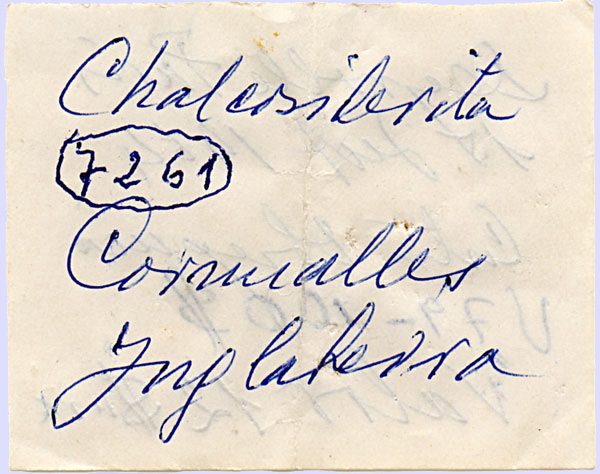 Chalcosiderita
7261
Cornualles
Inglaterra